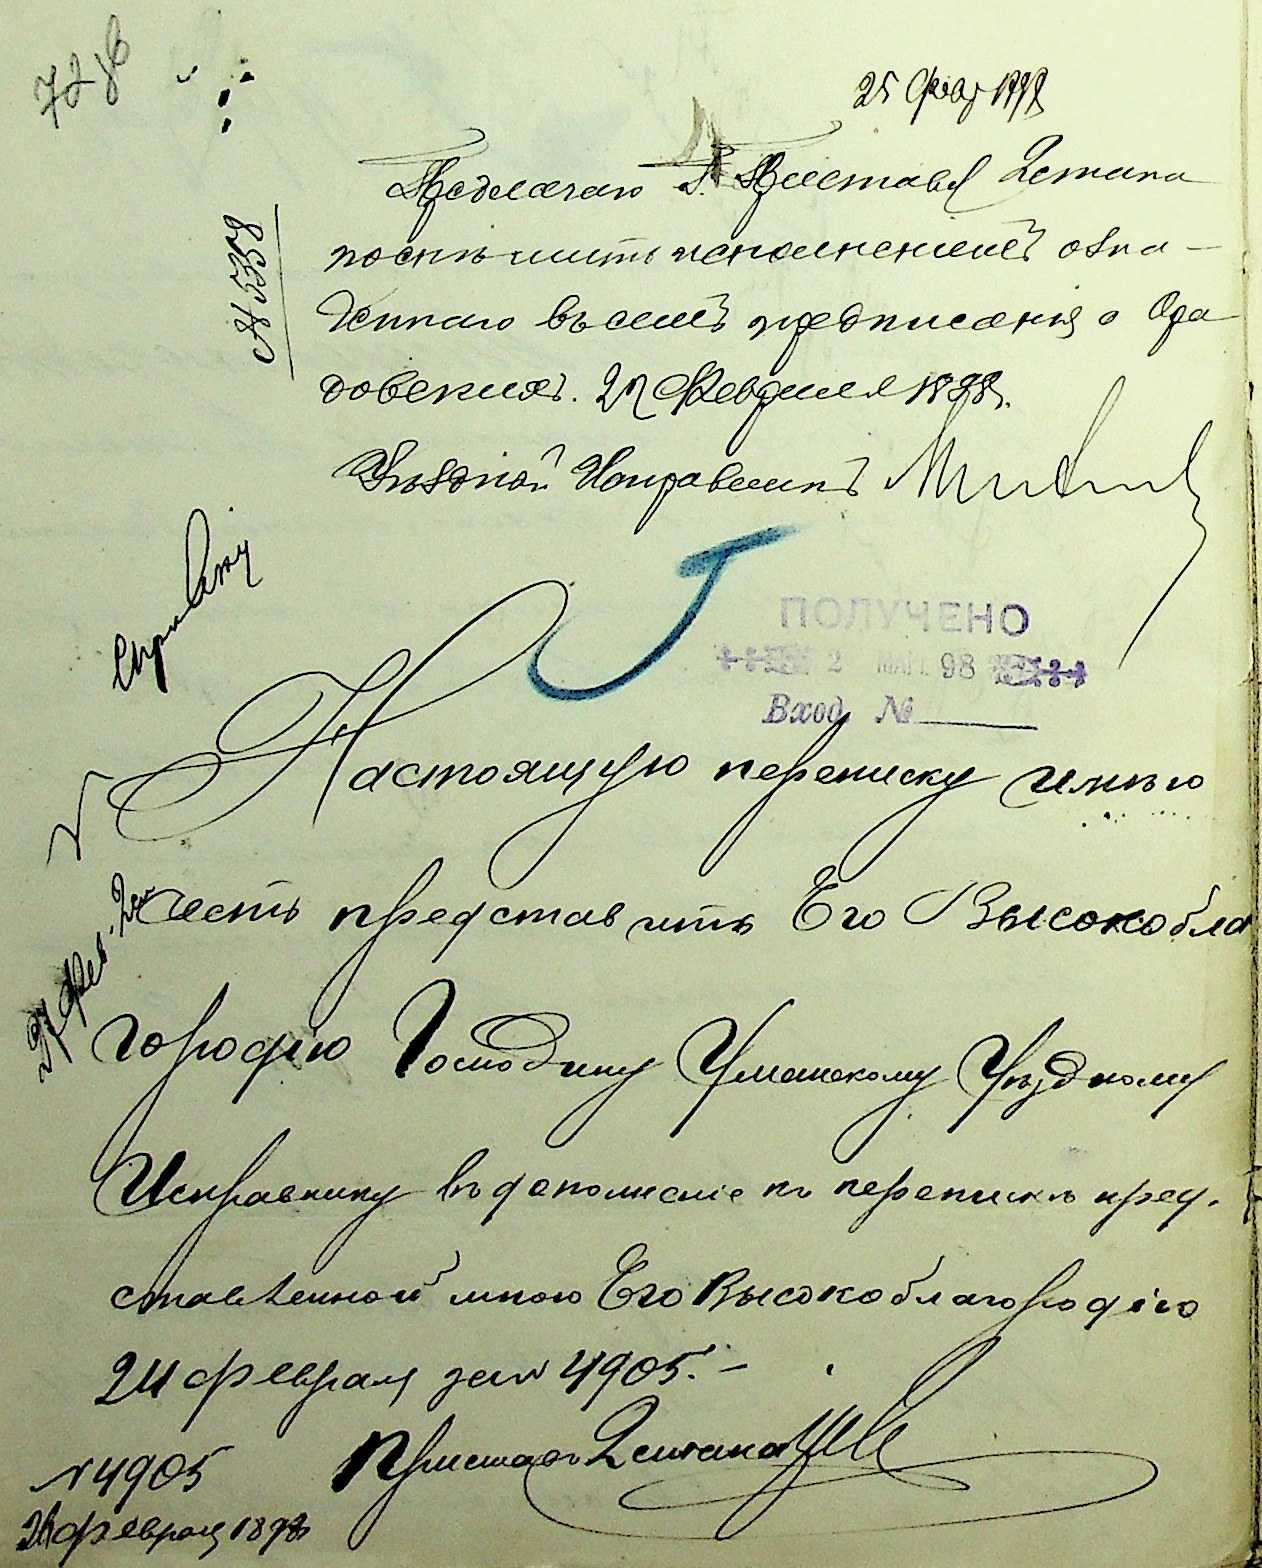 728
25 Фев 1898
Предлагаю Г. Приставу 2 стана
поспѣшить исполненіемъ озна-
ченнаго въ семъ предписанія о
2 Февраля 1898.
Уѣздный Исправникъ
№ 5358
Справку
ПОЛУЧЕНО
2 МАР. 98
Вход. №
Настоящую переписку имѣю
честь представить Его Высокобла
городію Господину Уманскому Уѣздному
Исправнику въ дополненіе къ перепискѣ пред-
ставленной мною Его Высокоблагородію
24 февраля за № 4905. -
Приставъ 2 стана
№ 4905
февраля 1898